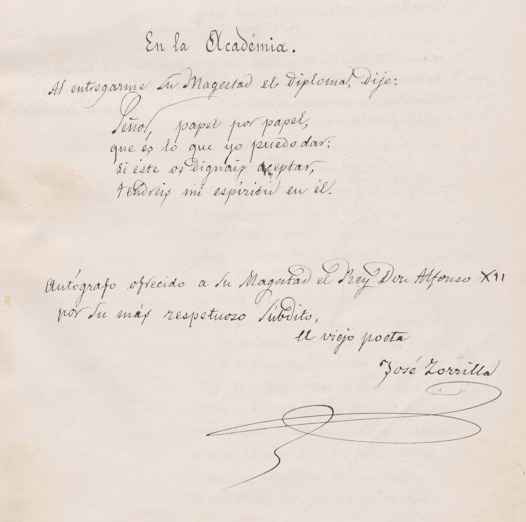 En la Académia.
Al entregarme Su Magestad el diploma, dije:
Señor, papel por papel,
que es lo que yo puedo dar:
si éste os dignais aceptar,
tendreis mi espíritu en él.
Autógrafo ofrecido a Su Magestad el Rey Don Alfonso XII
por su más respetuoso súbdito,
el viejo poeta
José Zorrilla